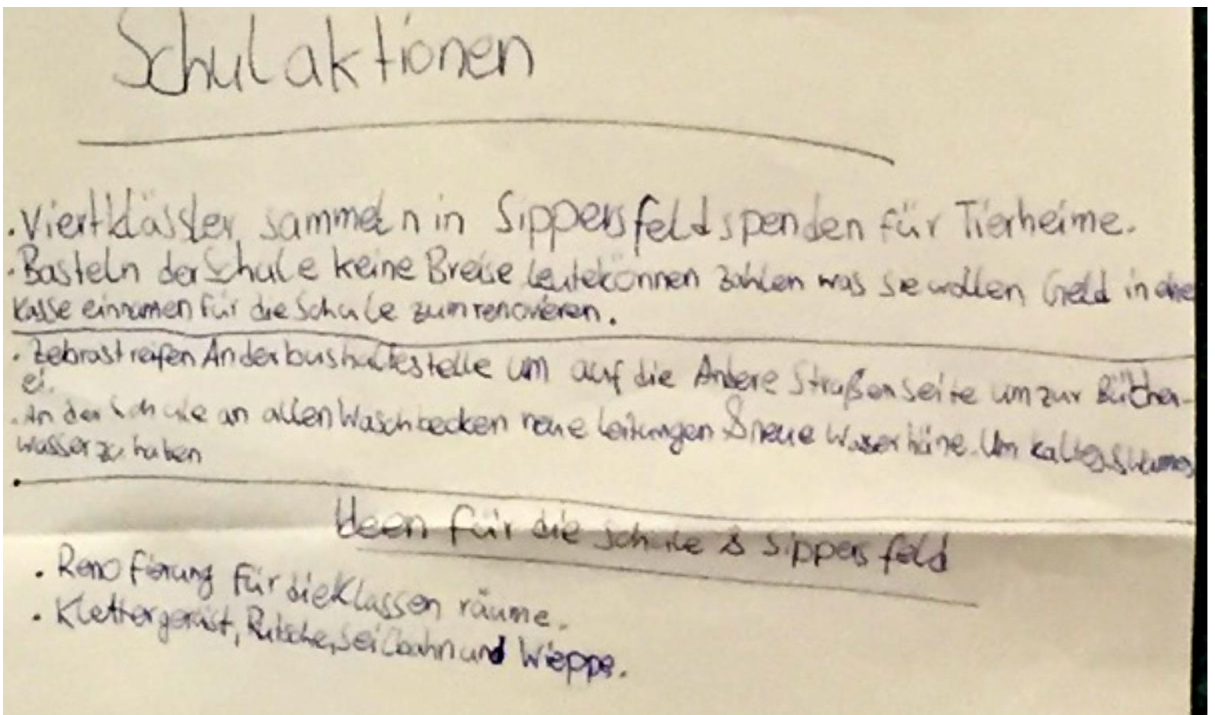 Schulaktionen
· Viertklässler sammeln in Sippersfeld spenden für Tierheime.
· Basteln der Schule keine Breise leute können zahlen was sie wollen Geld in eine
Kasse einnamen für die Schule zum renovieren.
· Zebrastreifen An der bushaltestelle um auf die Andere Straßenseite um zur Bücher-
ei.
· An der Schule an allen Waschbecken neue Leitungen & neue Waserhäne. Um kaltes & warmes
wasser zu haben
·
Ideen für die schule & Sippersfeld
· Renofierung für die Klassen räume.
· Klettergerüst, Rutsche, Seilbahn und Wieppe.